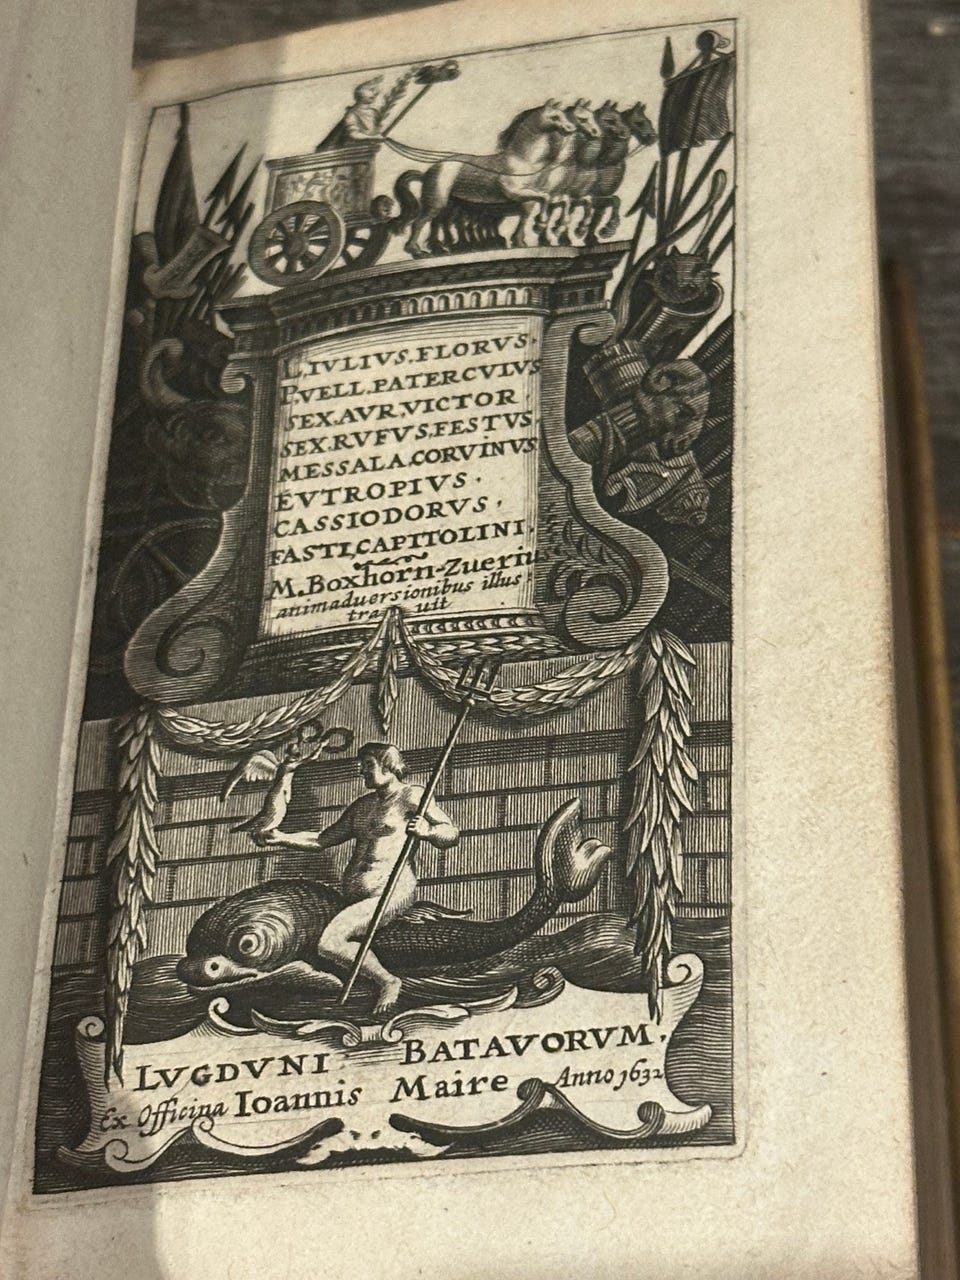 L. IVLIVS. FLORVS.
P. VELL. PATERCVLVS
SEX. AVR. VICTOR
SEX. RVFVS. FESTVS
MESSALA. CORVINVS
EVTROPIVS.
CASSIODORVS,
FASTI. CAPITOLINI.
M. Boxhorn-Zuerius
animaduersionibus illus:
tra uit
LVGDVNI BATAVORVM,
Ex Officina Ioannis Maire Anno 1632